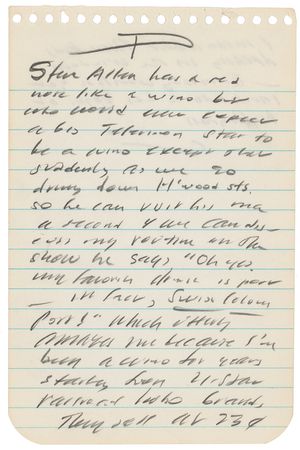 Steve Allen has a red
nose like a wino but
who would ever expect
a big Television Star to
be a wino except that
suddenly as we go
driving down H'wood sts.
so he can visit his ma
a second & we can dis-
cuss my routine on the
show he says "Oh yes
my favorite drink is port
— in fact, Swiss Colony
Port!" which utterly
amazes me because I'm
been a wino for years
starting from
railroad hobo brands,
They sell at 23¢